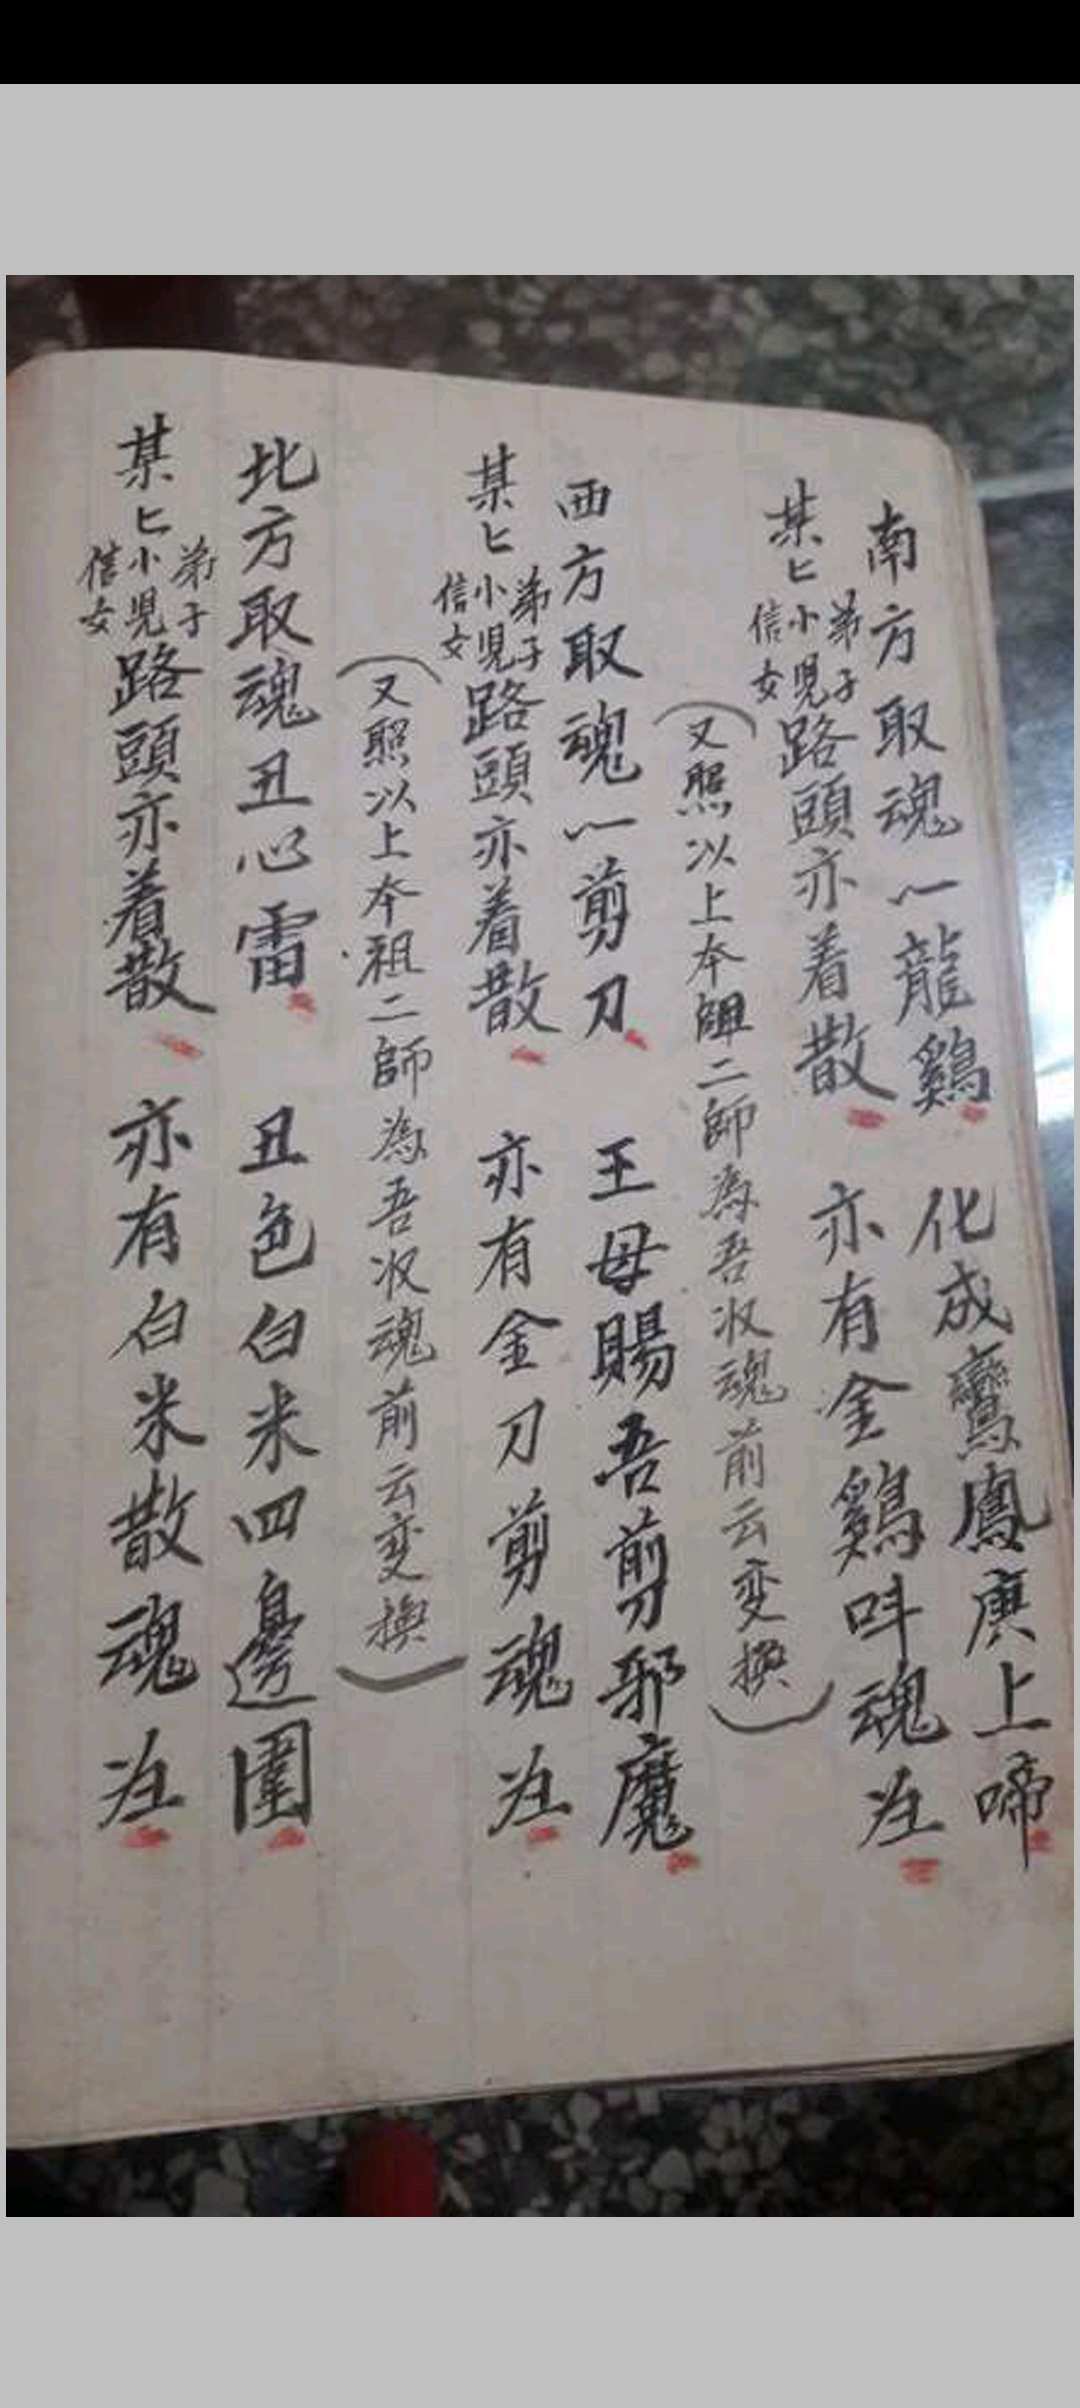 南方取魂一龍鷄 化成鸞鳳庚上啼
某匕弟子小児信女路頭亦着散 亦有金鷄叫魂在
(又照以上本祖二師為吾收魂前云变換)
西方取魂一剪刀 王母賜吾剪邪魔
某匕弟子小児信女路頭亦着散 亦有金刀剪魂在
(又照以上本祖二師為吾收魂前云变換)
北方取魂丑心雷 丑色白米四邊圍
某匕弟子小児信女路頭亦着散 亦有白米散魂在